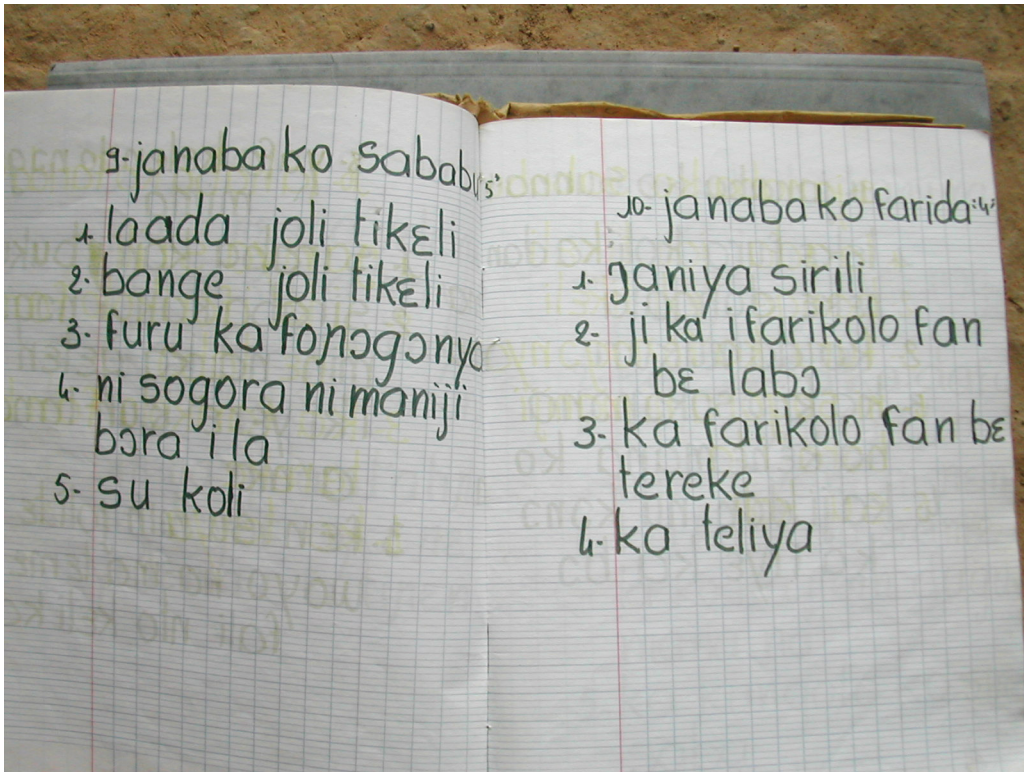 9-janaba ko sababu'5'
1. laada joli tikɛli
2. bange joli tikɛli
3- furu ka foɲɔgɔnya
4- ni sogora ni maniji
bɔra i la
5- su koli
10- janaba ko farida'4'
1. ŋaniya sirili
2- ji ka i farikolo fan
bɛ labɔ
3- ka farikolo fan bɛ
tereke
4- ka teliya